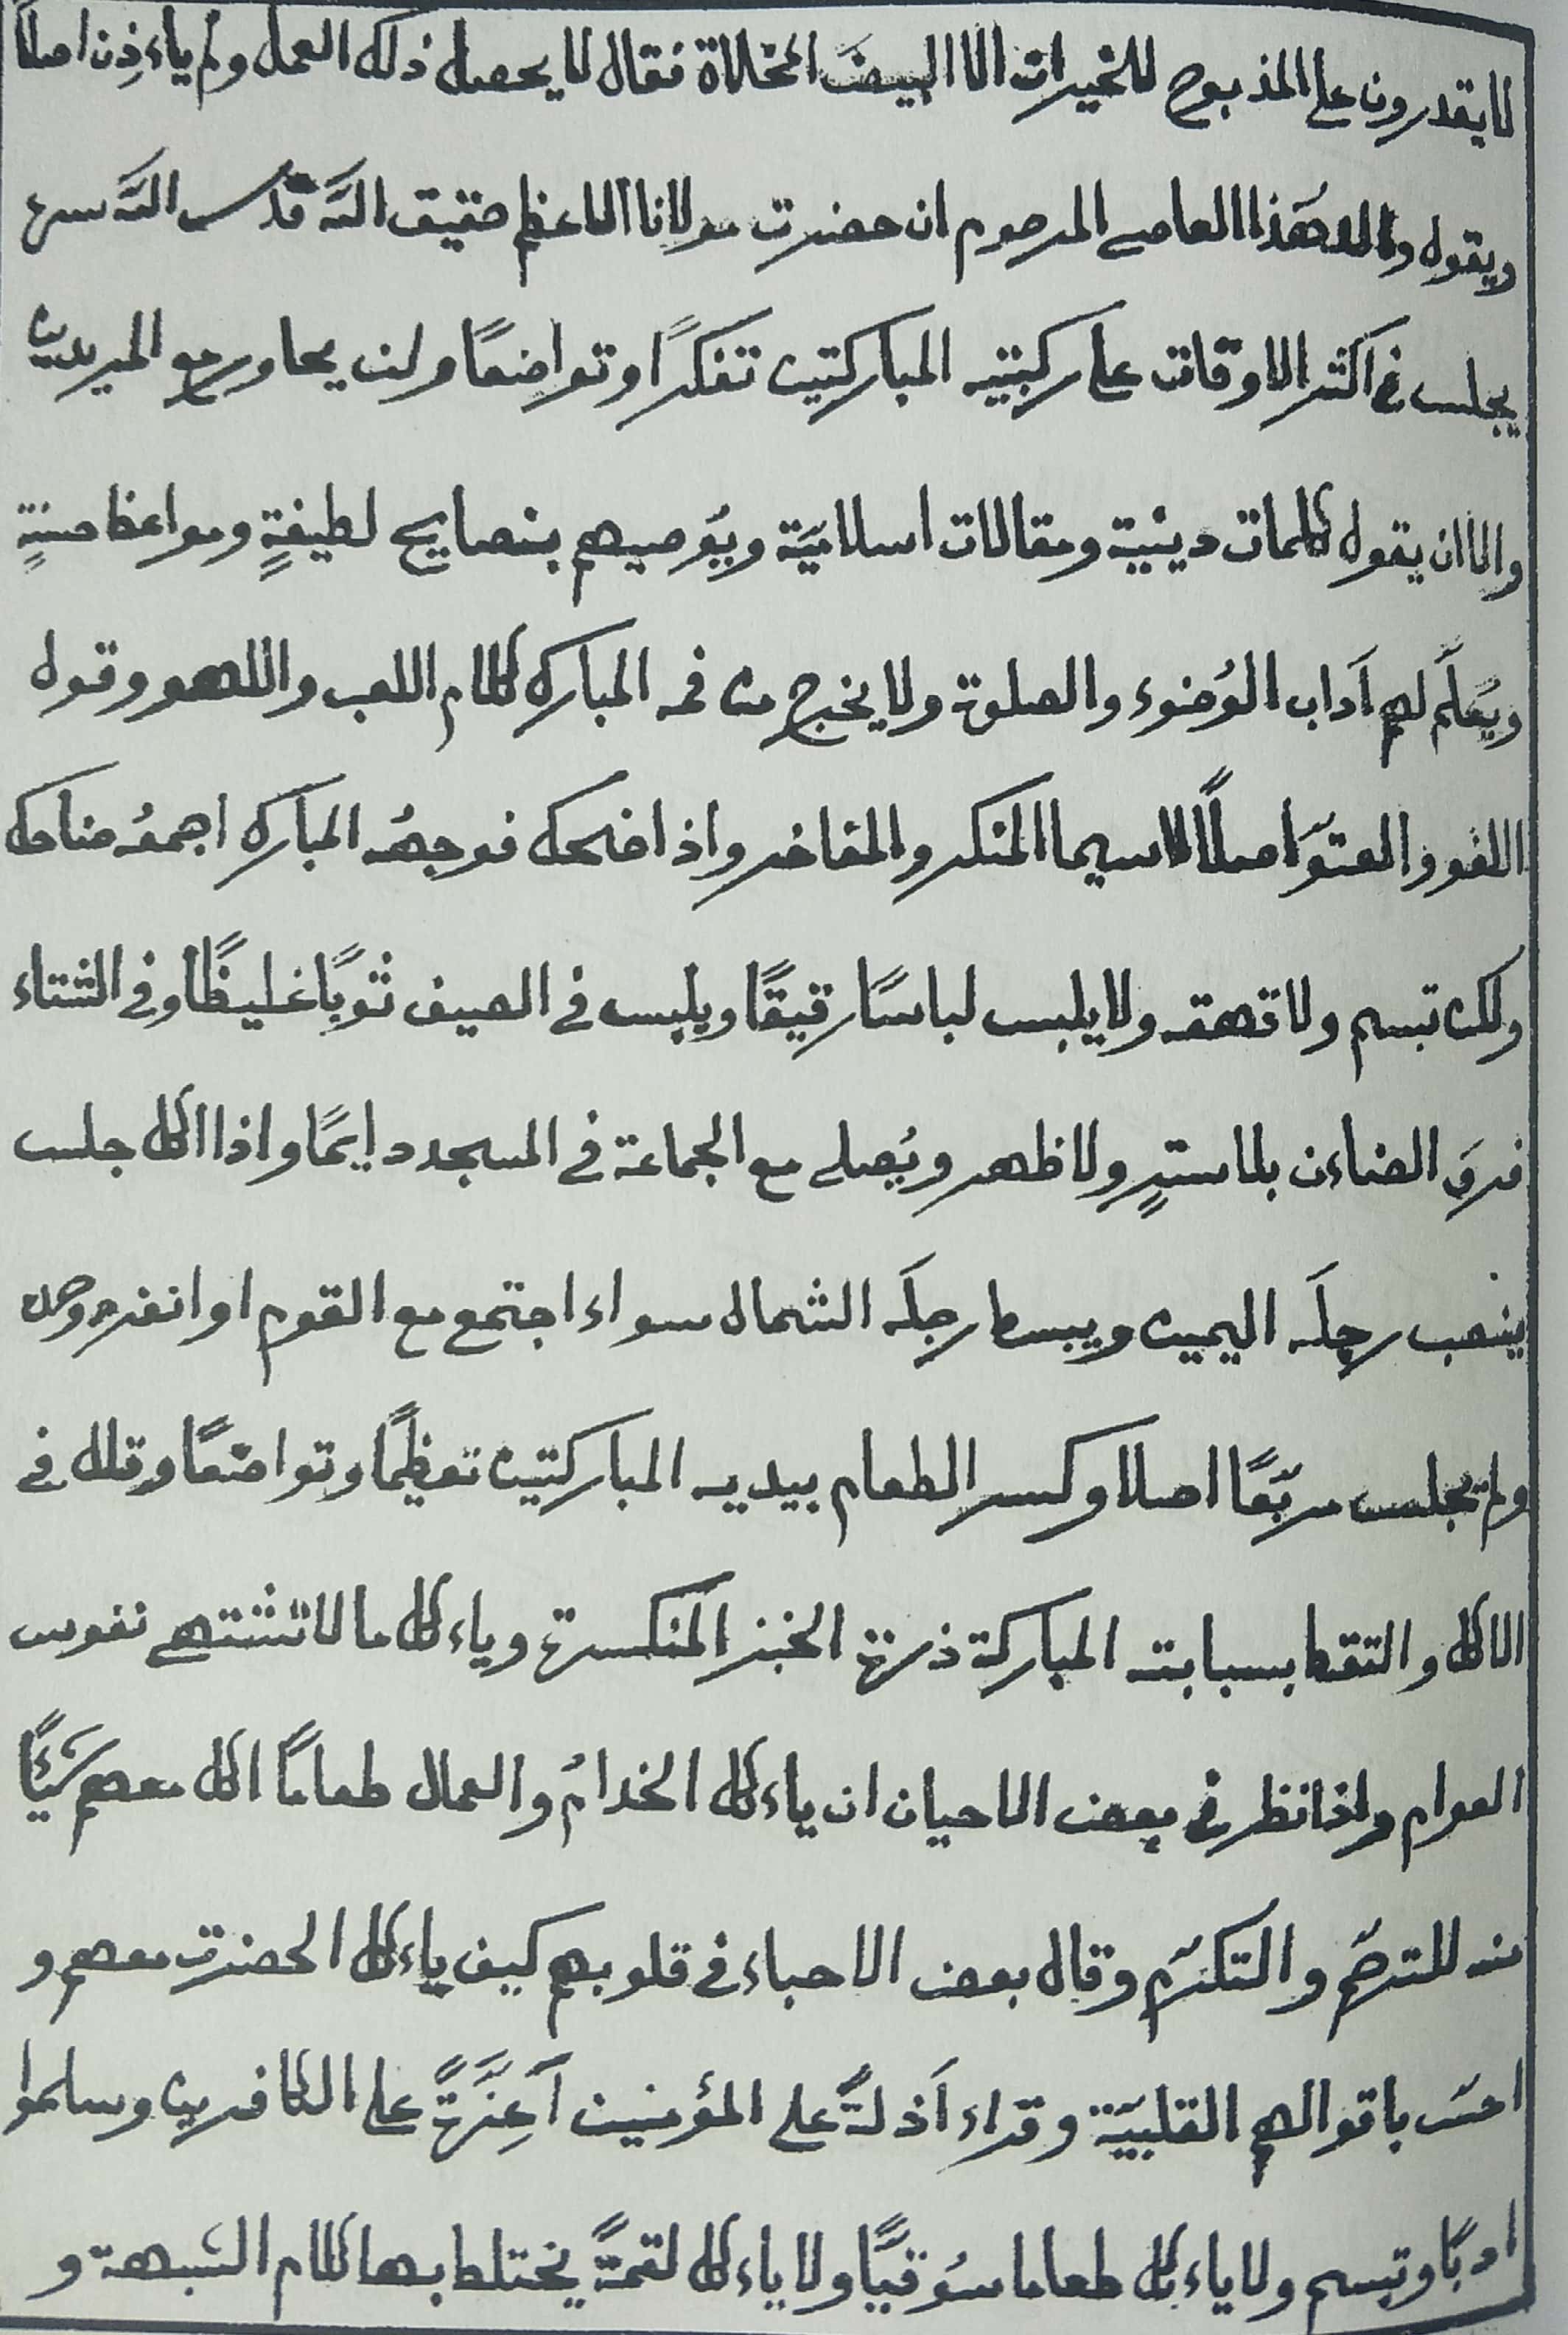 لا يقدرون على المذبوح للخيرات الا البيض المخلاة فقال لا يحصل ذلك العمل ولم ياءذن اصلاً
ويقول والد هٰذا العاصى المرحوم ان حضرت مولانا الاعظم صفيق الله قدس الله سره
يجلس فى اكثر الاوقات على ركبتيه المباركتين تفكرًا وتواضعًا ولن يحاور مع المريدين
والا ان يقول كلمات دينية ومقالات اسلاميّة ويُوصيهم بنصايح لطيفةٍ ومواعظ حسنةٍ
ويُعلّم لهم آداب الوُضوء والصلوة ولا يخرج من فمه المبارك كلام اللعب واللهو وقول
اللغو والعتوّ اصلاً لاسيما المنكر والمفاخر واذا ضحك فوجهُه المبارك اجمعُه ضاحك
ولكن تبسم ولا قهقه ولا يلبس لباسًا رقيقًا ويلبس فى الصيف ثوبًا غليظًا وفى الشتاء
فروَ الضاءن بلا سترٍ ولا ظهر ويُصلى مع الجماعة فى المسجد دايمًا واذا اكل جلس
ينصب رجلَه اليمين ويبسط رجلَه الشمال سواء اجتمع مع القوم او انفرد وحده
ولم يجلس مربّعًا اصلا وكسر الطعام بيديه المباركتين تعظيمًا وتواضعًا وقلل فى
الاكل والتقط بسبابته المباركة ذرة الخبز المنكسرة وياءكل ما لا تشتهى نفوس
العوام واذا نظر فى بعض الاحيان ان ياءكل الخدامُ والعمال طعامًا اكل معهم شَيْئًا
منه للترحّم والتكرّم وقال بعض الاحباء فى قلوبهم كيف ياءكل الحضرت معهم و
احسّ باقوالهم القلبيّة وقراء اَذلةً على المؤمنين اَعِزَّةً على الكافرين وسلموا
ادبًا وتبسم ولا ياءكل طعاما سُوقيًّا ولا ياءكل لقمةً يختلط بها كلام الشبهة و